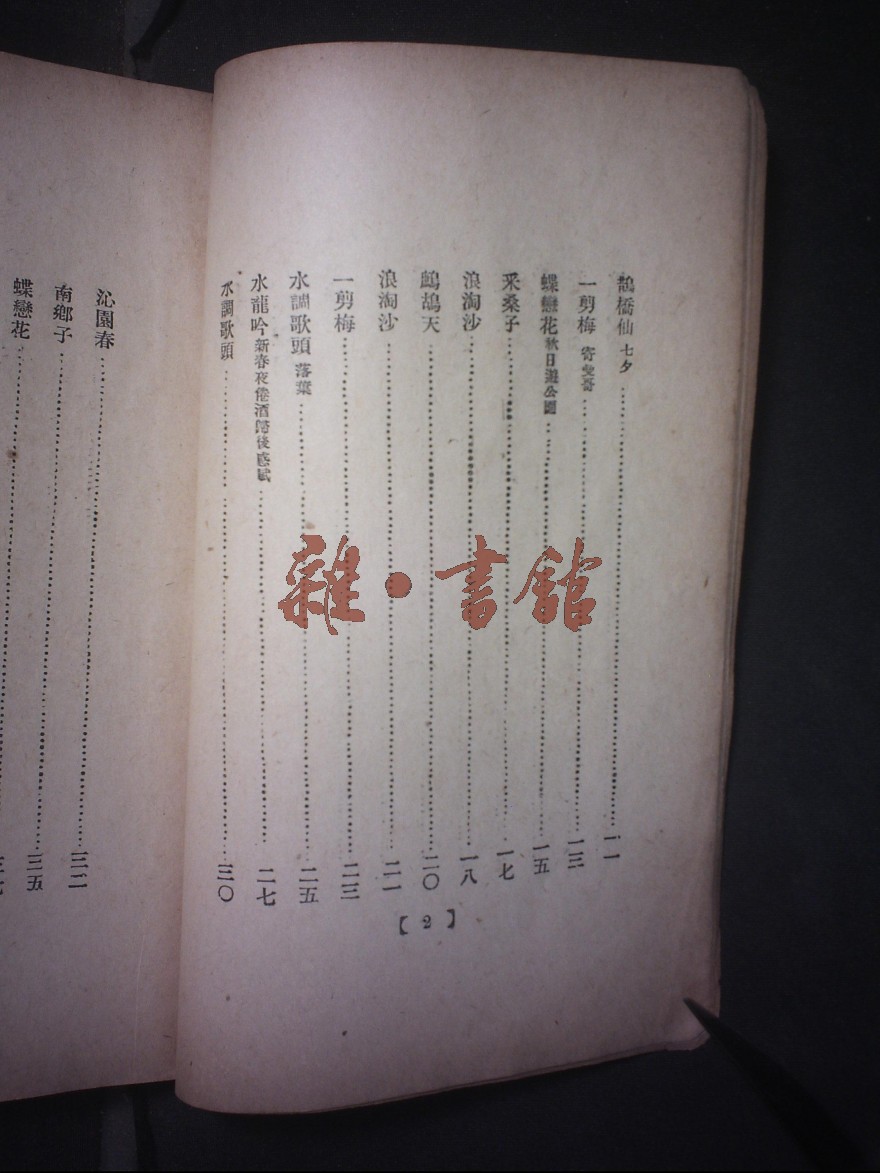 鵲橋仙 七夕……一一
一剪梅 寄 哥……一三
蝶戀花 秋日遊公園……一五
采桑子……一七
浪淘沙……一八
鷓鴣天……二〇
浪淘沙……二一
一剪梅……二三
水調歌頭 落葉……二五
水龍吟 新春夜倦酒歸後感賦……二七
水調歌頭……三〇
【2】
沁園春……三二
南鄉子……三五
蝶戀花……三七
雜・書館